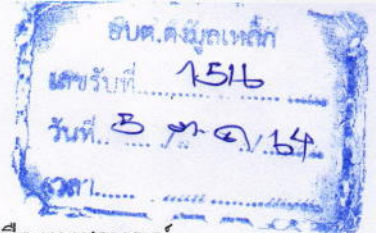 อบต.ดงมูลเหล็ก
เลขรับที่ 1516
วันที่ 5 ต.ค. / 64
เวลา